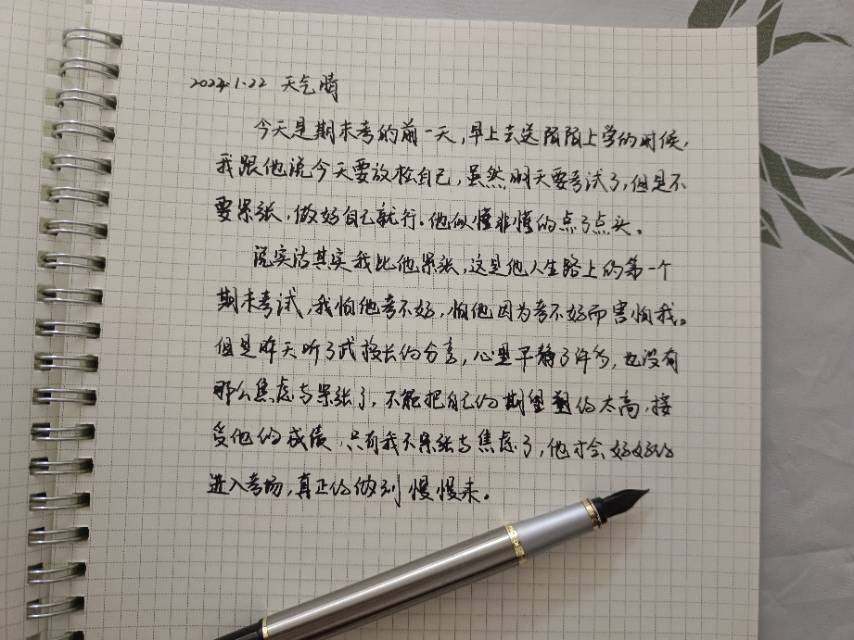 2024.1.22 天气晴
今天是期末考的前一天,早上去送阳阳上学的时候,
我跟他说今天要放松自己,虽然明天要考试了,但是不
要紧张,做好自己就行。他似懂非懂的点了点头。
说实话其实我比他紧张,这是他人生路上的第一个
期末考试,我怕他考不好,怕他因为考不好而害怕我。
但是昨天听了武校长的分享,心里平静了许多,也没有
那么焦虑与紧张了,不能把自己的期望的太高,接
受他的成绩,只有我不紧张与焦虑了,他才会好好的
进入考场,真正的做到慢慢来。